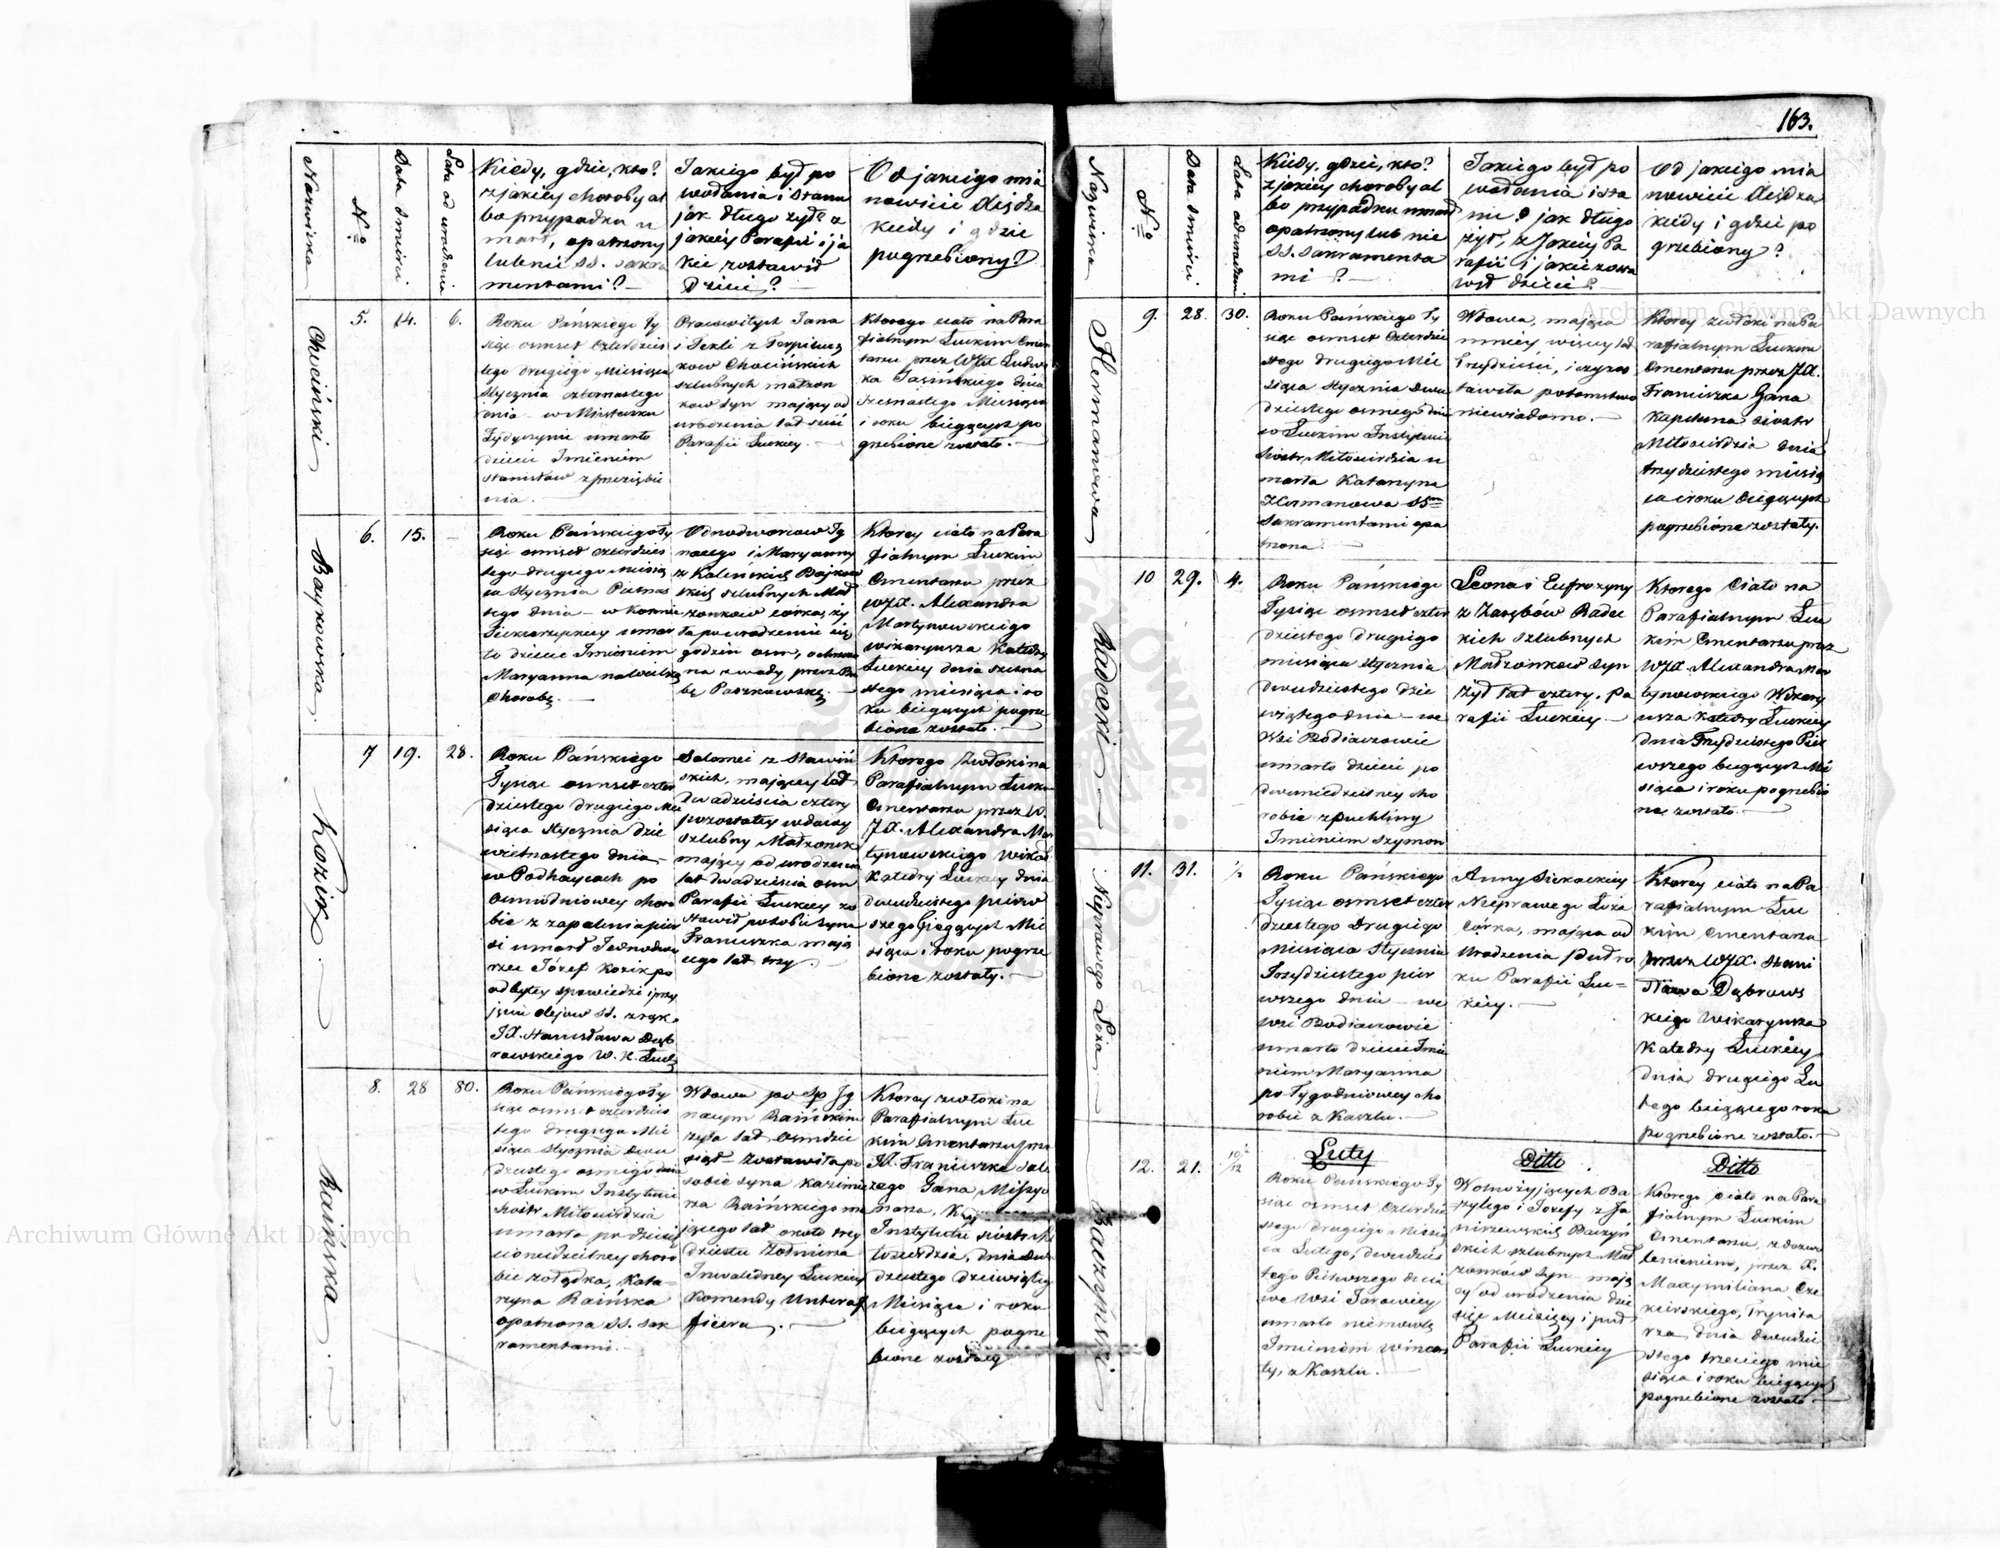 163.
Nazwiska
No
Data śmierci
Lata od urodzenia
Kiedy, gdzie, kto?
z jakiey choroby al
bo przypadku u
marł, opatrzony
lub nie SS. Sakra
mentami?
Jakiego był po
wołania i stanu
jak długo żył? z
jakiey Parafii i ja
kie zostawił
Dzieci?
Od jakiego mia
nowicie Xiędza
kiedy i gdzie
pogrzebiony?
Chociński
5.
14.
6.
Roku Pańskiego Ty
siąc osmset czterdzies
tego drugiego Miesiąca
Stycznia czternastego
dnia w Miasteczku
umarło
dziecie Imieniem
Stanisław z przeziębie
nia.
Pracowitych Jana
i Tekli z
kow Chocińskich
szlubnych małżon
kow syn mający od
urodzenia lat sześć
Parafii Łuckiey.
Ktorego ciało na Para
fialnym Łuckim Cmen
tarzu przez WJX. Ludwi
ka Jasińskiego dnia
szesnastego Miesiąca
i roku bieżących po
grzebione zostało.
Baykowska
6.
15.
Roku Pańskiego Ty
siąc osmset czterdzies
tego drugiego Miesią
ca Stycznia Pietnas
tego dnia w
umar
ło dziecie Imieniem
Maryanna na wielką
Chorobę.
Odnodworcow Ig
nacego i Maryanny
z Kaleńskich Bajkow
skich szlubnych Mał
żonkow corka, ży
ła po urodzeniu się
godzin osm, ochrzczo
na z wody przez Ba
bę Paszkowskę.
Ktorey ciało na Para
fialnym Łuckim
Cmentarzu przez
WJX. Alexandra
Martynowskiego
Wikaryusza Katedry
Łuckiey dnia szesna
stego miesiąca i ro
ku bieżących pogrze
bione zostało.
Kozik
7
19.
28.
Roku Pańskiego
Tysiąc osmset czter
dziestego drugiego Mie
siąca Stycznia dzie
wietnastego dnia
w Podhaycach po
osmiodniowey choro
bie z zapalenia pier
si umarł Jednodwo
rzec Józef Kozik po
odbytey spowiedzi i przy
jęciu olejow SS. z rąk
JX. Stanisława Dąb
rowskiego W. K. Łuck
Salomei z Sławiń
skich, mającey lat
dwadzieścia cztery
pozostałey wdowy
szlubny Małżonek
mający od urodzenia
lat dwadzieścia osm
Parafii Łuckiey zo
stawił po sobie syna
Franciszka mają
cego lat trzy.
Ktorego Zwłoki na
Parafialnym Łuckim
Cmentarzu przez W.
JX. Alexandra Mar
tynowskiego Wikar
Katedry Łuckiey dnia
dwudziestego pierw
szego bieżących Mie
siąca i roku pogrze
bione zostały.
Raińska
8.
28
80.
Roku Pańskiego Ty
siąc osmset czterdzies
tego drugiego Mie
siąca Stycznia dwu
dziestego osmego dnia
w Łuckim Instytucie
Siostr Miłosierdzia
umarła po dziesię
cioniedzielney choro
bie żołądka, Kata
rzyna Raińska
opatrzona SS. Sak
ramentami.
Wdowa po śp Ig
nacym Raińskim
żyła lat osmdzie
siąt zostawiła po
sobie syna Kazimie
rza Raińskiego ma
jącego lat około trzy
dziestu Żołnierza
Inwalidney Łuckiey
Komendy Unteroff
ficera.
Ktorey zwłoki na
Parafialnym Łuc
kim Cmentarzu przez
JX. Franciszka Sale
zego Gana Missyo
narza,
Instytutu Siostr Mi
łosierdzia, dnia dwu
dziestego dziewiątego
Miesiąca i roku
bieżących pogrze
bione zostały
Nazwiska
No
Data śmierci.
Lata od urodzeni
Kiedy, gdzie, kto?
z jakiey choroby al
bo przypadku umarł
opatrzony lub nie
SS. Sakramenta
mi?
Jakiego był po
wołania i sta
nu? jak długo
żył, z Jakiey Pa
rafii i jakie zosta
wił dzieci?
Od jakiego mia
nowicie Xiędza
kiedy i gdzie po
grzebiony?
Hermanowa
9.
28.
30.
Roku Pańskiego Ty
siąc osmset czterdzie
stego drugiego Mie
siąca Stycznia dwu
dziestego osmego dnia
w Łuckim Instytucie
Siostr Miłosierdzia u
marła Katarzyna
Hermanowa SS
Sakramentami opa
trzona.
Wdowa, mająca
mniey więcey lat
trzydzieści, i czy zos
tawiła potomstwo
niewiadomo.
Ktorey zwłoki na Pa
rafialnym Łuckim
Cmentarzu przez JX.
Franciszka Gana
Kapelana Siostr
Miłosierdzia dnia
trzydziestego miesią
ca i roku bieżących
pogrzebione zostały.
Radecki
10
29.
4.
Roku Pańskiego
Tysiąc osmset czter
dziestego drugiego
miesiąca Stycznia
dwudziestego dzie
wiątego dnia we
Wsi Bodiaczowie
umarło dziecie po
dwuniedzielney cho
robie z puchliny
Imieniem Szymon
Leona i Eufrozyny
z Zarębów Radec
kich szlubnych
Małżonkow syn
żył lat cztery. Pa
rafii Łuckiey.
Ktorego Ciało na
Parafialnym Łuc
kim Cmentarzu przez
WJX. Alexandra Mar
tynowskiego Wikary
usza Katedry Łuckiey
dnia Trzydziestego Pier
wszego bieżących Mie
siąca i roku pogrzebio
ne zostało.
Nieprawego Łoża
11.
31.
1/2
Roku Pańskiego
Tysiąc osmset czter
dziestego Drugiego
Miesiąca Stycznia
Trzydziestego pier
wszego dnia we
wsi Bodiaczowie
umarło dziecie Imie
niem Maryanna
po Tygodniowey cho
robie z Kaszlu.
Anny Siekackiey
Nieprawego Łoża
Córka, mająca od
Urodzenia pułro
ku Parafii Łuc=
kiey.
Ktorey ciało na Pa
rafialnym Łuc
kim Cmentarzu
przez WJX. Stani
sława Dąbrows
kiego Wikaryusza
Katedry Łuckiey
dnia drugiego Lu
tego bieżącego roku
pogrzebione zostało.
Baczyński
12.
21.
Luty
Roku Pańskiego Ty
siąc osmset czterdzie
stego drugiego Miesią
ca Lutego, dwudzies
tego Pierwszego dnia
we Wsi Jarowicy
umarło niemowlę
Imieniem Wincen
ty, z Kaszlu.
Ditto
Wolnożyjących Ba
zylego i Jozefy z Ja
niszewskich Baczyń
skich szlubnych Mał
żonków syn mają
cy od urodzenia dzie
sięć Miesięcy i puł
Parafii Łuckiey
Ditto
Ktorego ciało na Para
fialnym Łuckim
Cmentarzu, z dozwo
leniem, przez X.
Maxymiliana
Trynita
rza, dnia dwudzie
stego trzeciego mie
siąca i roku bieżących
pogrzebione zostało
Archiwum Główne Akt Dawnych
Archiwum Główne Akt Dawnych